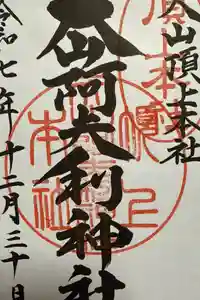 大山頂上本社
大山阿夫利神社
令和七年十二月三十日
頂上
本社